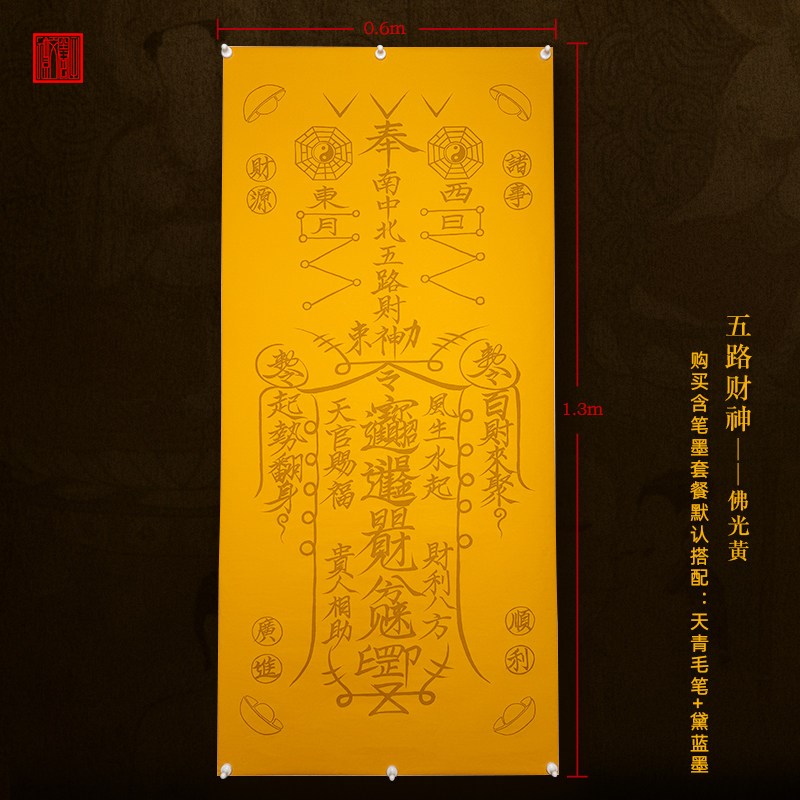 0.6m
1.3m
奉
南中北五路財神
東
月
西
日
財源
諸事
令
起勢翻身
天官賜福
風生水起
百財來聚
貴人相助
財利八方
廣進
順利
五路财神——佛光黄
购买含笔墨套餐默认搭配：天青毛笔+黛蓝墨